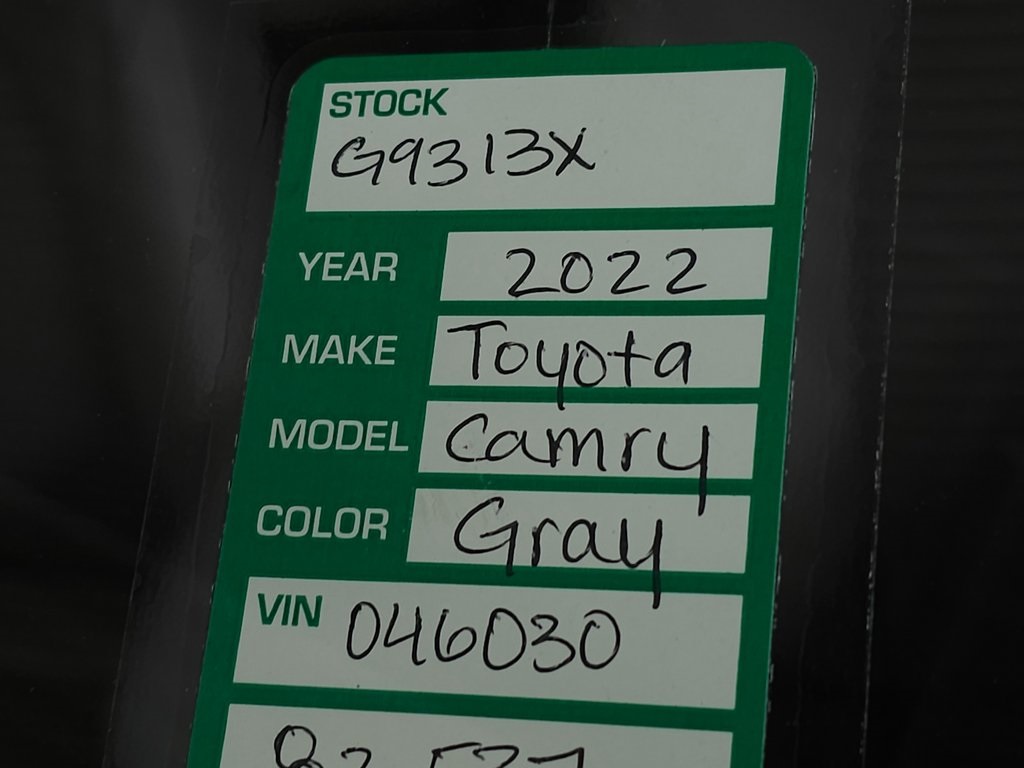 STOCK
G9313X
YEAR 2022
MAKE Toyota
MODEL Camry
COLOR Gray
VIN 046030